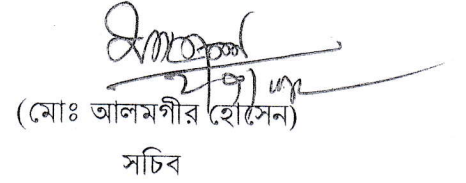 (মোঃ আলমগীর হোসেন)
সচিব